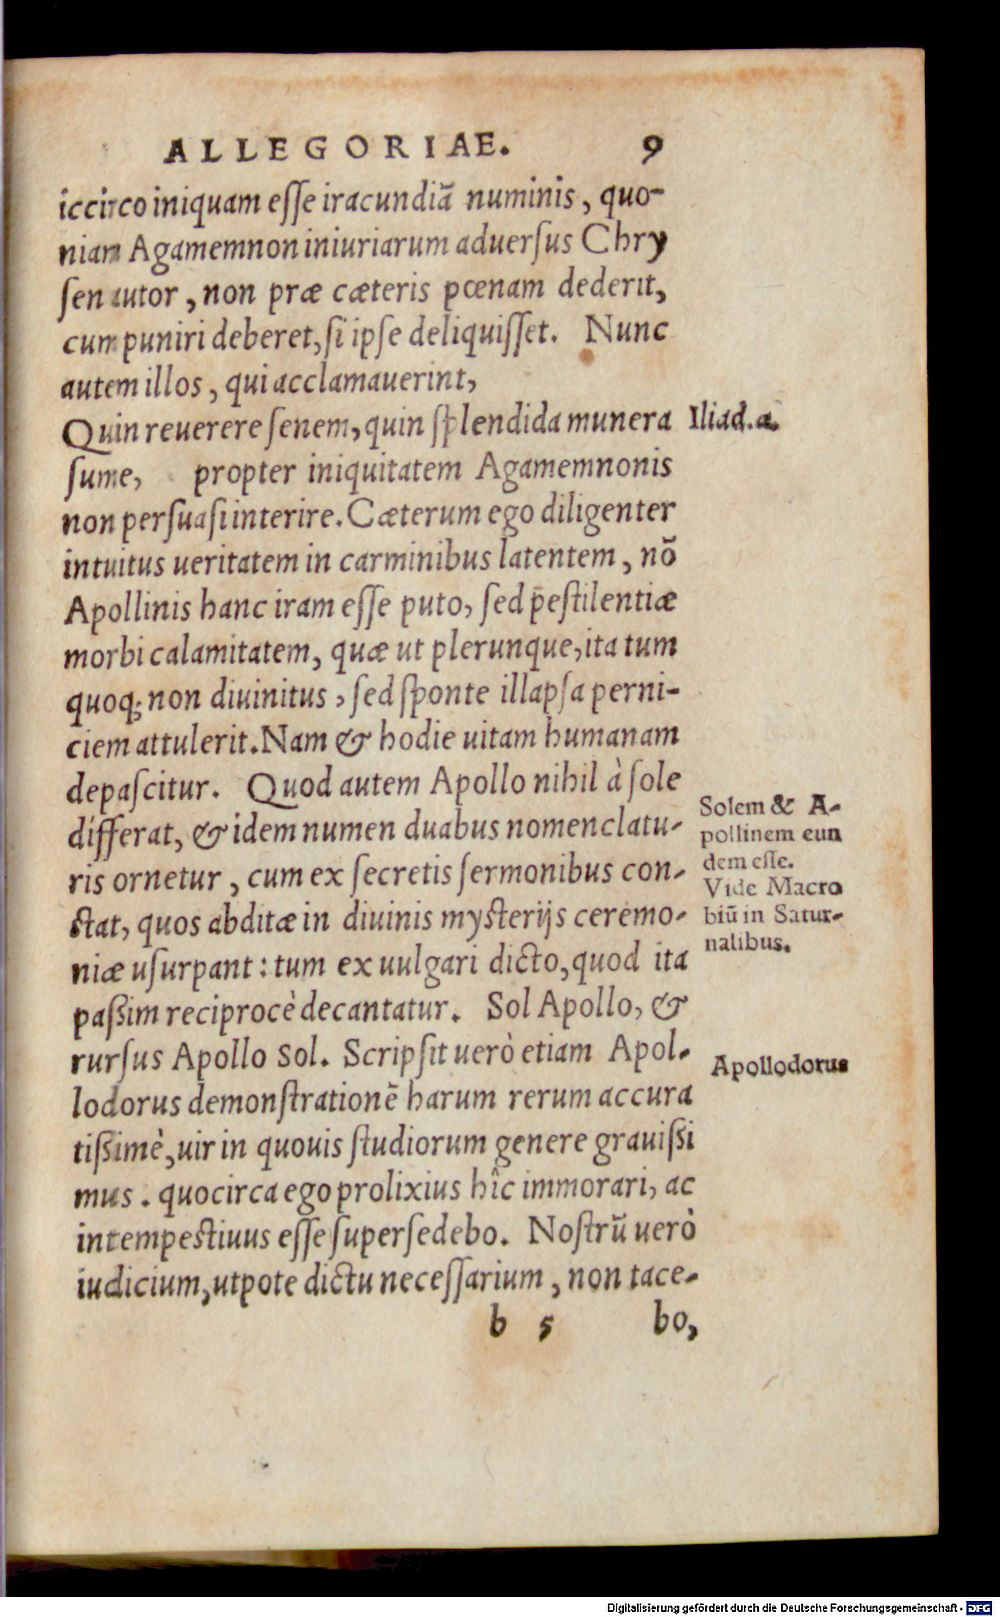 ALLEGORIAE. 9
iccirco iniquam eſſe iracundiā numinis, quo-
niam Agamemnon iniuriarum aduerſus Chry
ſen autor, non præ cæteris pœnam dederit,
cum puniri deberet, ſi ipſe deliquiſſet. Nunc
autem illos, qui acclamauerint,
Quin reuerere ſenem, quin ſplendida munera
Iliad.α.
ſume, propter iniquitatem Agamemnonis
non perſuaſi interire. Cæterum ego diligenter
intuitus ueritatem in carminibus latentem, nō
Apollinis hanc iram eſſe puto, ſed peſtilentiæ
morbi calamitatem, quæ ut plerunque, ita tum
quoq; non diuinitus, ſed ſponte illapſa perni-
ciem attulerit. Nam & hodie uitam humanam
depaſcitur. Quod autem Apollo nihil à ſole
differat, & idem numen duabus nomenclatu-
ris ornetur, cum ex ſecretis ſermonibus con-
ſtat, quos abditæ in diuinis myſterijs ceremo-
niæ uſurpant: tum ex uulgari dicto, quod ita
paßim reciprocè decantatur. Sol Apollo, &
rurſus Apollo Sol. Scripſit uerò etiam Apol-
lodorus demonſtrationē harum rerum accura
tißimè, uir in quouis ſtudiorum genere grauißi
mus. quocirca ego prolixius hîc immorari, ac
intempeſtiuus eſſe ſuperſedebo. Noſtrū uerò
iudicium, utpote dictu neceſſarium, non tace-
Solem & A-
pollinem eun
dem eſſe.
Vide Macro
biū in Satur-
nalibus.
Apollodorus
b 5 bo,
Digitalisierung gefördert durch die Deutsche Forschungsgemeinschaft - DFG